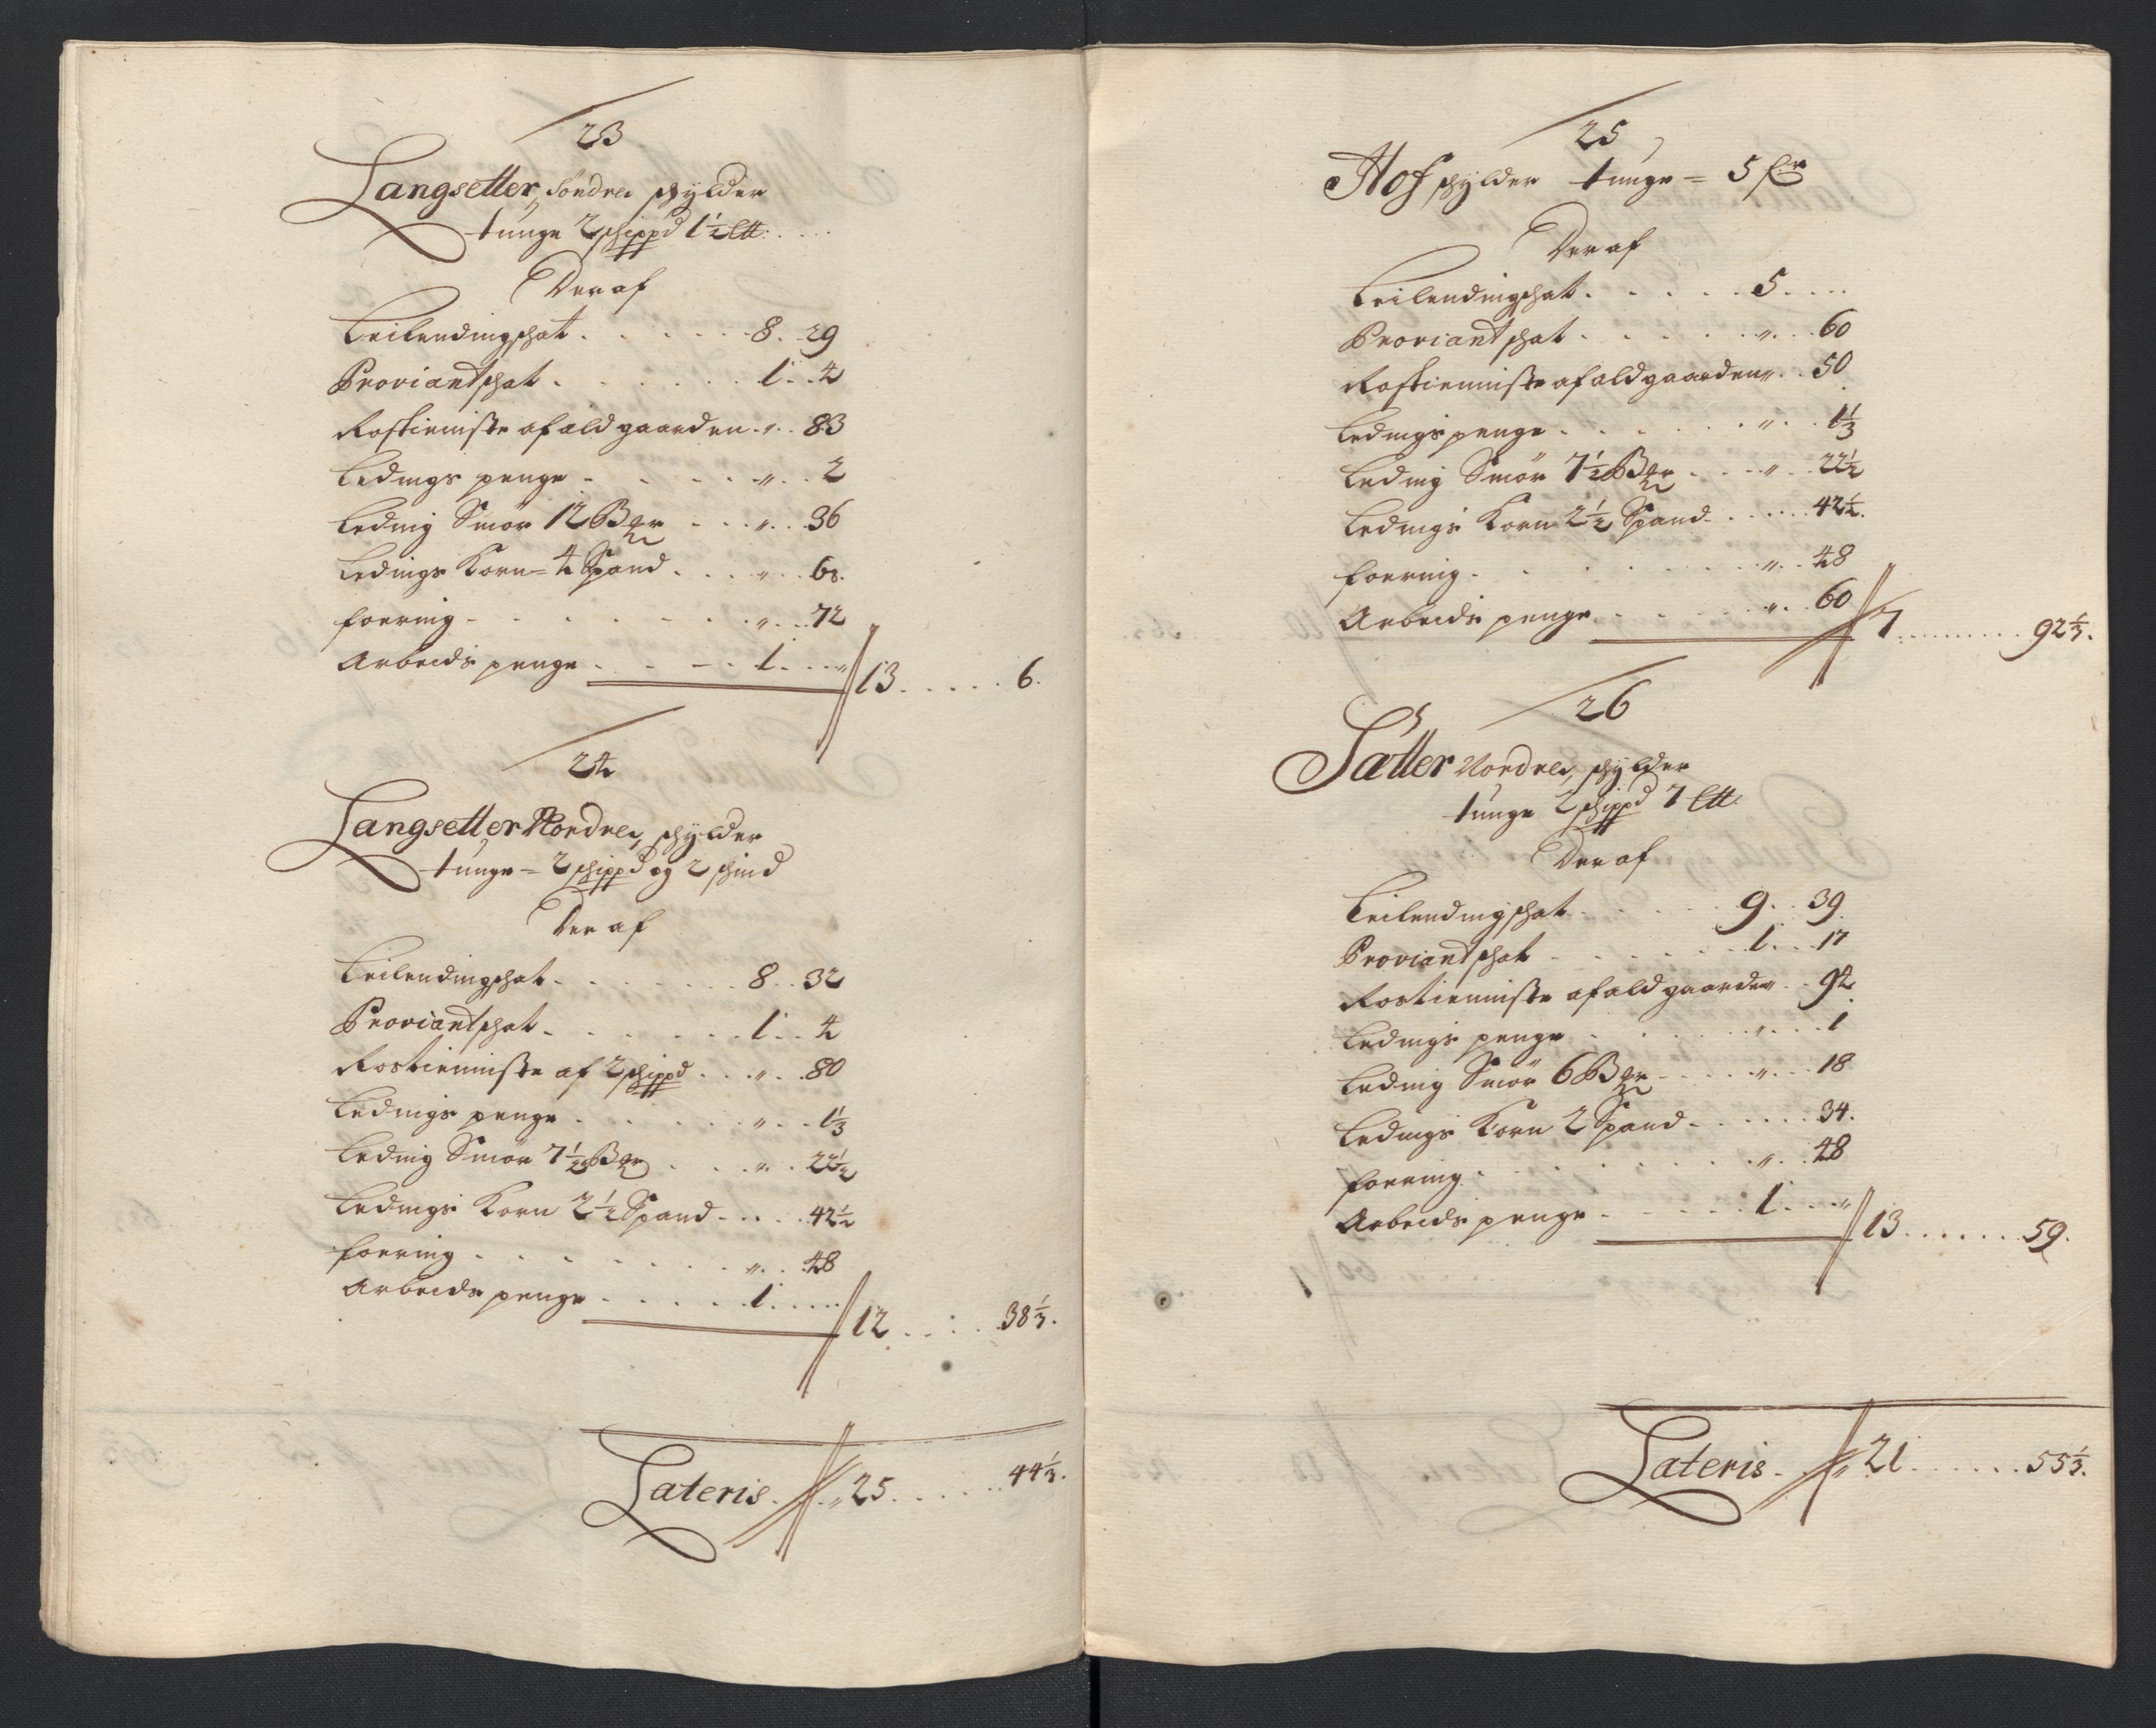 23
Langsetter Söndre, schylder
tunge 2 schippd 1½ Ltt:
Der af
Leilendingschat . . . . . 8 . 29
Proviantschat . . . . . 1 . . 4
Rostienniste af ald gaarden . „ . . 83
Ledings penge - . . . „ . . 2
Leding Smör 12 Bger . . . „ . . 36
Ledings Korn = 4 Spand . . . „ . . 68.
foering - . . . . . „ . . 72
Arbeids penge . . - . 1 . . . „ 13 . . . . . 6.
24
Langsetter Nordre, schylder
tunge = 2 schippd og 2 schind
Der af
Leilendingschat . . . . . 8 . . 32
Proviantschat . . . . . 1 . . 4
Rostienniste af 2 schippd . . . „ . . 80
Ledings penge . . . . . „ . . 1⅓
Leding Smör 7½ Bger . . . „ . . 22½
Ledings Korn 2½ Spand - . . . 42½
foering . . . . . . „ . . 48
Arbeids penge . . . . . 1 . . . . 12 . . . . 38⅓.
Lateris . . „ 25 . . . . . . 44⅓.
25
Hof schylder tunge = 5 sp
Der af
Leilendingschat . . . . . 5 . . . .
Proviantschat . . . . . „ . . 60
Rostienniste af ald gaarden „ . . 50
Ledings penge . . . . . „ . . 1⅓
Leding Smör 7½ Bger . . . „ . . 22½
Ledings Korn 2½ Spand . . . . . 42½.
foering . . . . . . „ . . 48
Arbeids penge . . . . „ . . 60 7 . . . . . . . . 92⅓.
26
Sætter Nordre, schylder
tunge 2 schippd 7 Ltt.
Der af
Leilendingschat . . . . . 9 . . 39.
Proviantschat . . . . . 1 . . 17
Rostienniste af ald gaarden . . 92
Ledings penge . . . . . „ . . . 1
Leding Smör 6 Bger - . . . „ . . 18
Ledings Korn 2 Spand - . . . . . 34.
foering . . . . . . „ . . 48
Arbeids penge . . . . . 1 . . . „ 13 . . . . . . 59.
Lateris . . „ 21 . . . . . . 55⅓.